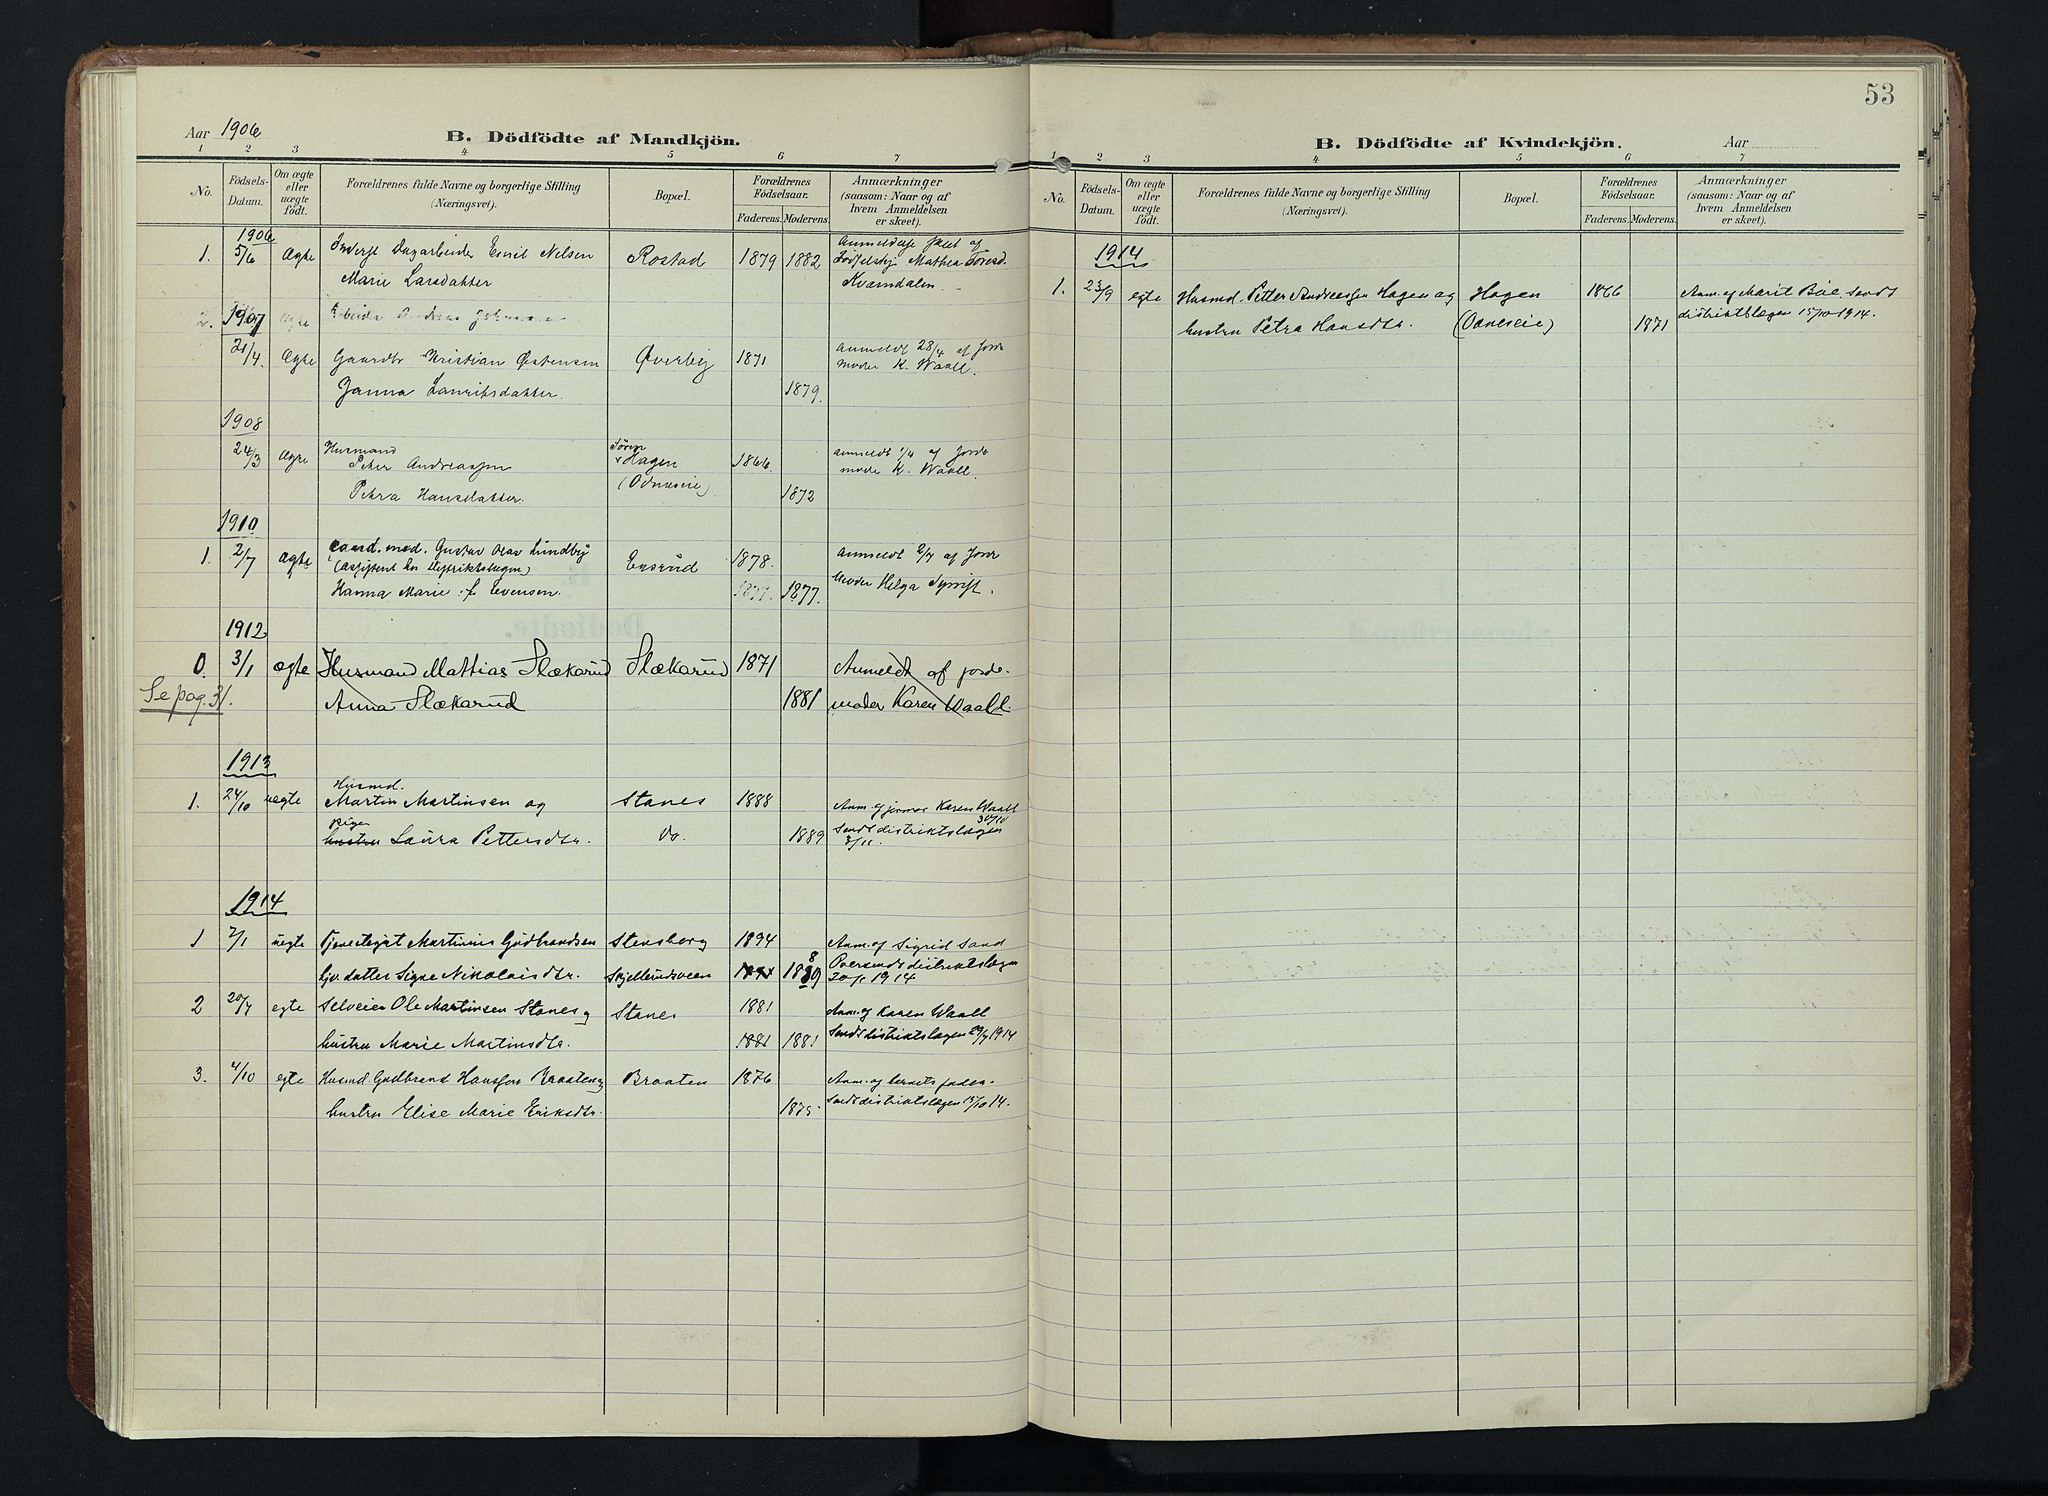 Aar 1906
B. Dödfödte af Mandkjön.
1 2 3 4 5 6 7
No.
Födsels-Datum.
Om ægte eller uægte födt.
Forældrenes fulde Navne og borgerlige Stilling (Næringsvei).
Bopæl.
Forældrenes Födselsaar.
Faderens. Moderens.
Anmærkninger (saasom: Naar og af hvem Anmeldelsen er skeet).
1906
1. 5/6 Ægte Dagarbeider Emil Nelsen Rostad 1879 1882 Anmeldelse af
Marie Larsdatter Mathea
Kværndalen.
1907
21/4. Ægte Gaardbr Kristian Østensen Øverby 1871 anmeldt 28/4 af Jorde
Janna Lauritsdatter. 1879. moder K. Waall.
1908
24/3 Ægte Husmand
Peter Andreassen Hagen 1866 anmeldt 1/4 af Jorde
Petra Hansdatter. (Odneseie) 1872 mode K. Waall.
1910
1. 2/7 Ægte cand. med. Gustav Olav Lundby Ensrud 1878. anmeldt 2/7 af Jorde
(Assistent hos Distriktslægen)
Hanna Marie f. Evensen. 1877. 1877. Moder Helga
1912
0. 3/1 ægte Husmand Mattias Slækarud Slækarud 1871 Anmeldt af jorde-
Se pag. 31. Anna Slækarud 1881 moder Karen Waall.
1913
1. 24/10 uegte Husmd.
Martin Martinsen og Stanes 1888 Anm. af jormor Karen Waall
30/10
pigen
hustru Laura Pettersdtr. Do. 1889 Sendt distriktslægen
3/11.
1914
1 7/1 uegte Tjenestegut Martinius Gudbrandsen Stensborg 1894 Anm. af Sigrid Sand
Gjv. datter Signe Nikolaisdtr. Skjellundsveen Oversendt distriktslægen
20/1 1914
2 20/7 egte Selveier Ole Martinsen Stanes og Stanes 1881 Anm. af Karen Waall
hustru Marie Martinsdtr. 1881 1881 Sendt distriktslægen 29/7 1914
3. 4/10 egte Husmd. Gudbrand Hanssen Braaten og Braaten 1876 Anm. af barnets fader.
hustru Elise Marie Eriksdtr. 1875. Sendt distriktslægen 15/10 14.
53
B. Dödfödte af Kvindekjön.
Aar
1 2 3 4 5 6 7
No.
Födsels-Datum.
Om ægte eller uægte födt.
Forældrenes fulde Navne og borgerlige Stilling (Næringsvei).
Bopæl.
Forældrenes Födselsaar.
Faderens. Moderens.
Anmærkninger (saasom: Naar og af hvem Anmeldelsen er skeet).
1914
1. 23/9 egte Husmd. Petter Andreassen Hagen og Hagen 1866 Anm. af Marit Böe Sendt
hustru Petra Hansdtr. (Odneseie) 1871 distriktslægen 15/10 1914.